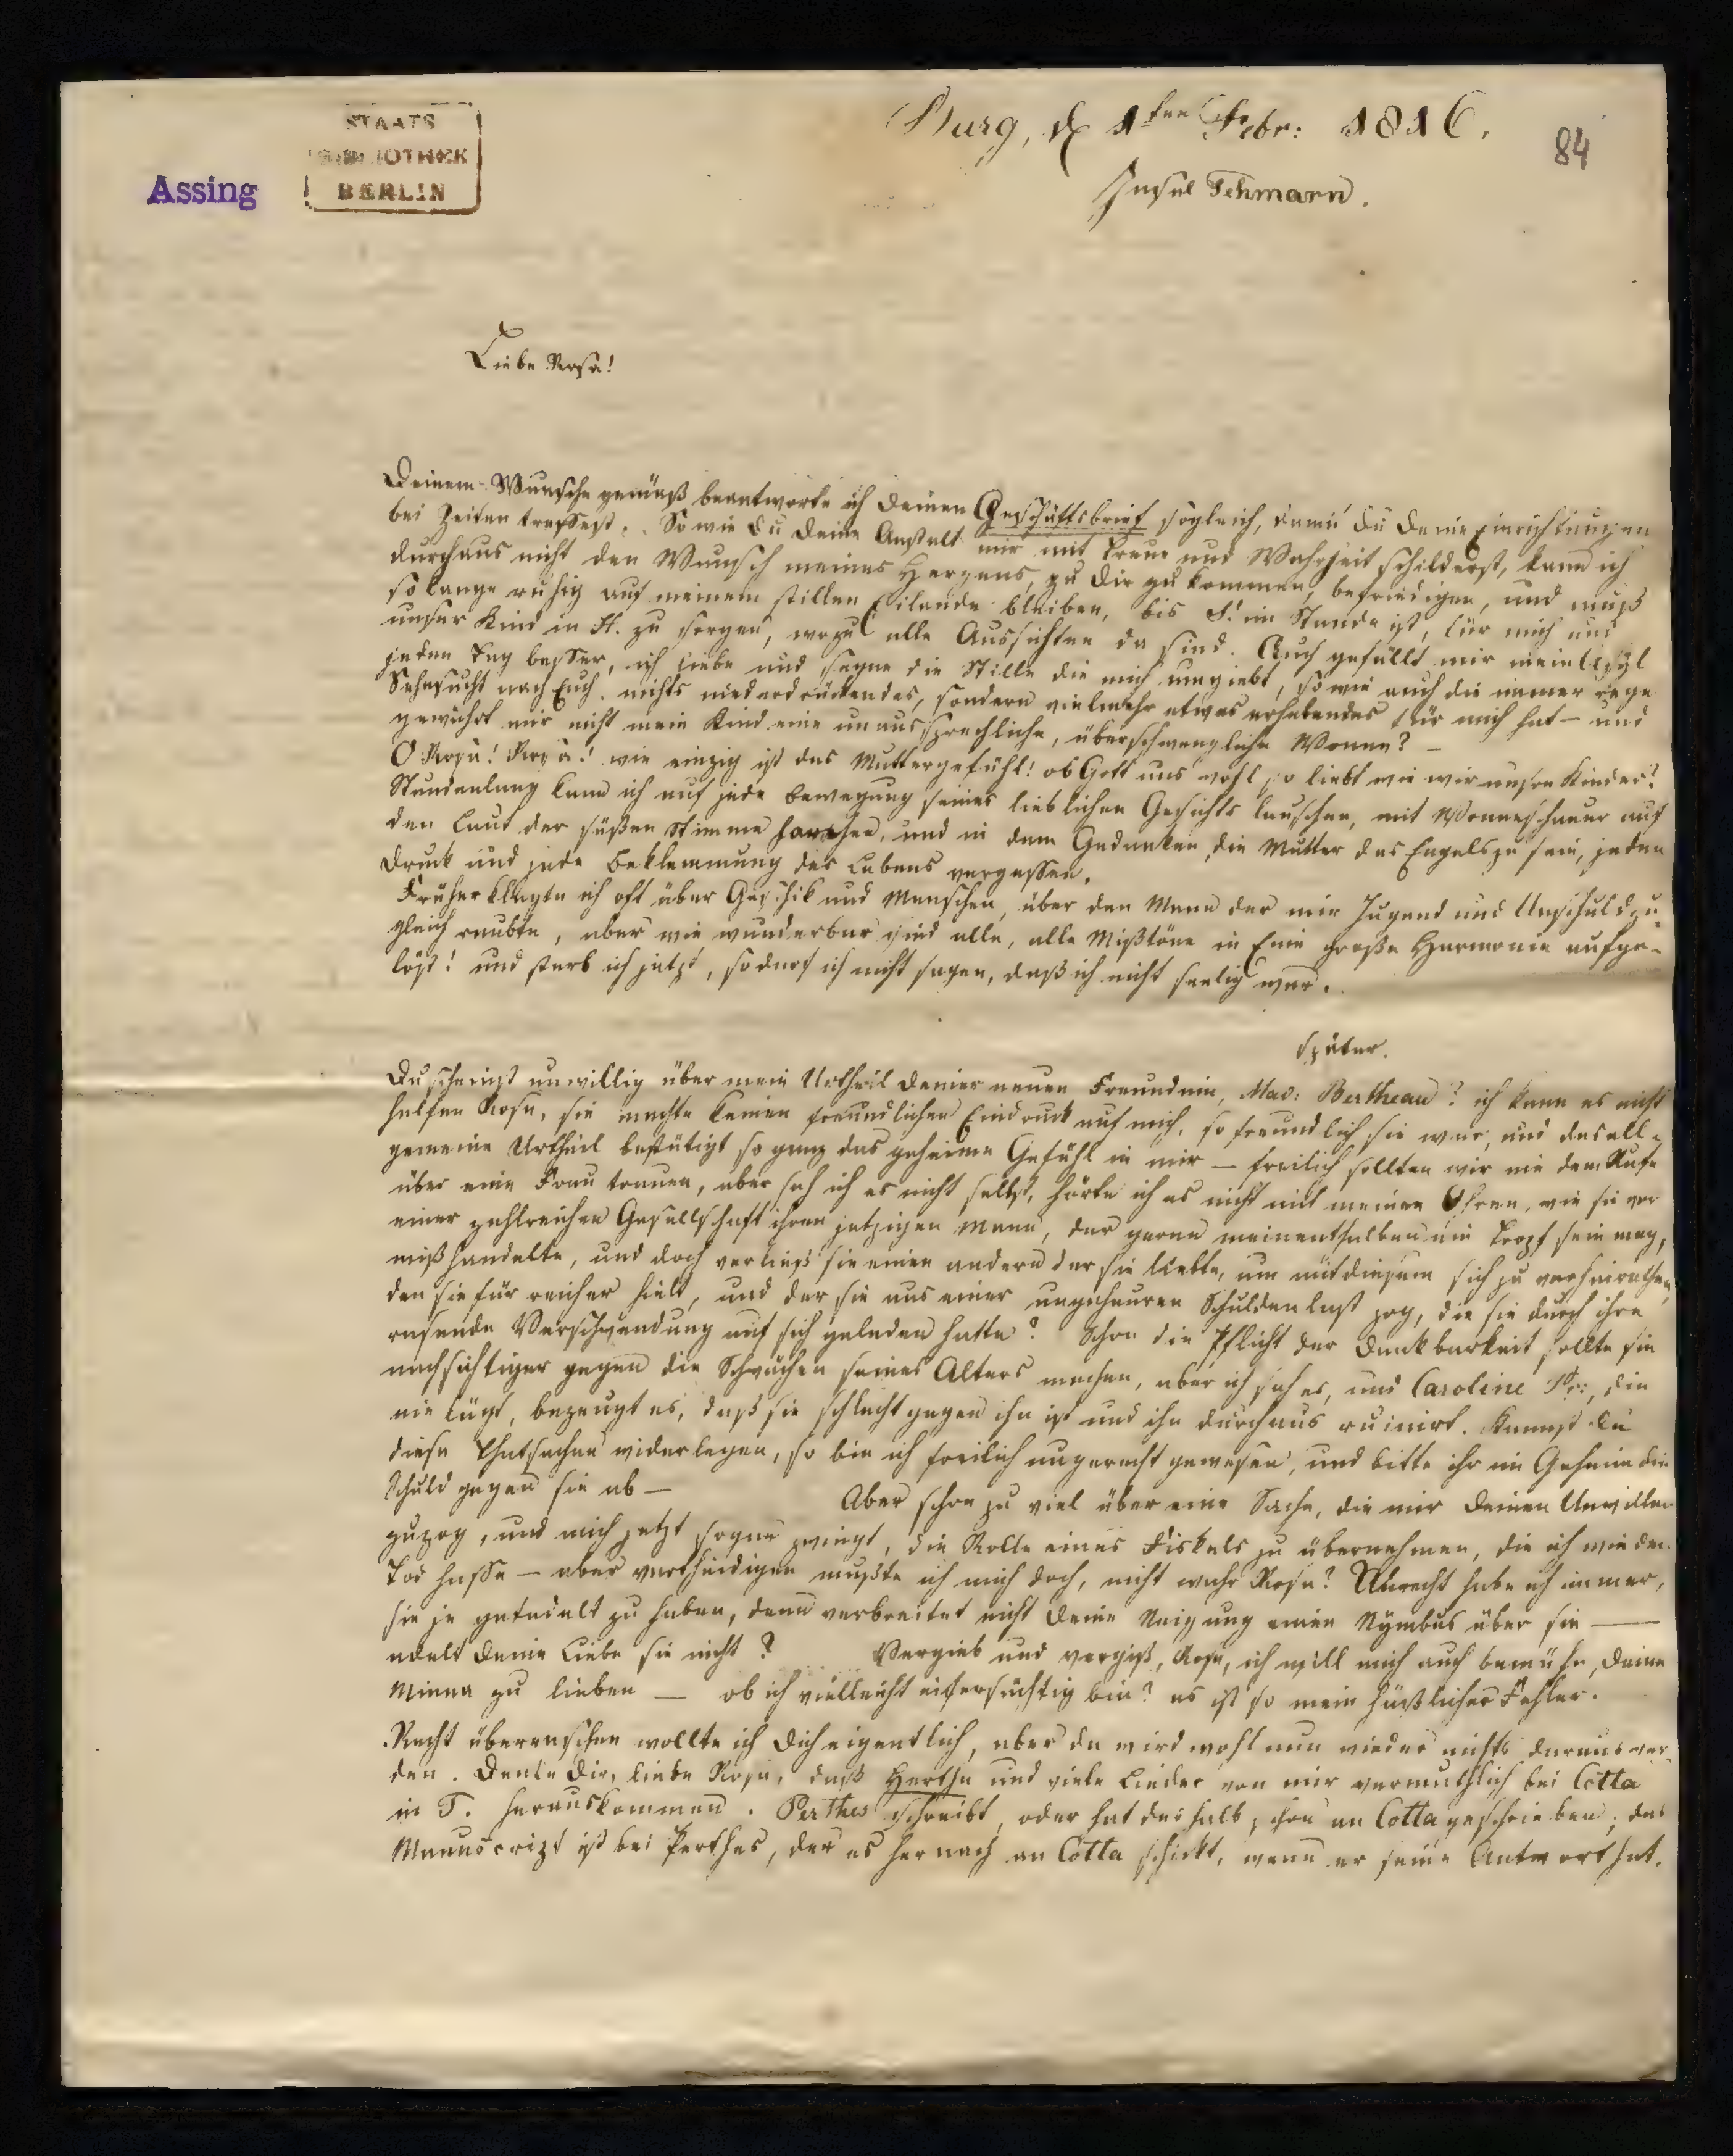 Burg, d 1ten Febr: 1816.
84
Insel Fehmarn.
STAATS
BIBLIOTHEK
BERLIN
Assing
Liebe Rosa!
Deinem Wunsche gemäß beantworte ich Deinen Geschäftsbrief sogleich, damit Du Deine Einrichtungen
bei Zeiten treffest. So wie Du Deine Anstalt mir mit Treue und Wahrheit schilderst, kann ich
durchaus nicht den Wunsch meines Herzens, zu Dir zu kommen, befriedigen, und muß
so lange ruhig auf meinem stillen Eilande bleiben, bis im Stande ist, für mich und
unser Kind in H. zu sorgen, wozu alle Aussichten da sind. Auch gefällt mir mein Asyl
jeden Tag besser, ich liebe und segne die Stille die mich umgiebt, so wie auch die immer rege
Sehnsucht nach Euch nichts niederdrückendes, sondern vielmehr etwas erhebendes für mich hat – und
gewährt mir nicht mein Kind eine unaussprechliche, überschwengliche Wonne? –
O Rosa! Rosa! wie einzig ist das Muttergefühl! ob Gott uns wohl so liebt wie wir unsre Kinder?
Stundenlang kann ich auf jede Bewegung seines lieblichen Gesichts lauschen, mit Wonneschauer auf
den Laut der süßen Stimme horchen, und in dem Gedanken, die Mutter des Engels zu sein, jeden
Druck und jede Beklemmung des Lebens vergessen.
Früher klagte ich oft über Geschik und Menschen, über den Mann der mir Jugend und Unschuld zu-
gleich raubte, aber wie wunderbar sind alle, alle Mißtöne in Eine große Harmonie aufge-
löst! und starb ich jetzt, so darf ich nicht sagen, daß ich nicht seelig war.
Später.
Du scheinst unwillig über mein Urtheil Deiner neuen Freundin, Mad: Bertheau? ich kann es nicht
helfen Rosa, sie machte keinen freundlichen Eindruck auf mich, so freundlich sie war, und das all-
gemeine Urtheil bestätigt so ganz das geheime Gefühl in mir – freilich sollten wir nie dem Rufe
über eine Frau trauen, aber sah ich es nicht selbst, hörte ich es nicht mit meinen Ohren, wie sie vor
einer zahlreichen Gesellschaft ihren jetzigen Mann, der gerne meinenthalben ein Tropf sein mag,
mißhandelte, und doch verließ sie einen andern der sie liebte, um mit diesem sich zu verheirathen,
den sie für reicher hielt, und der sie aus einer ungeheuren Schuldenlast zog, die sie durch ihre
rasende Verschwendung auf sich geladen hatte? Schon die Pflicht der Dankbarkeit sollte sie
nachsichtiger gegen die Schwächen seines Alters machen, aber ich sah es, und Caroline Pr:, die
nie lügt, bezeugt es, daß sie schlecht gegen ihn ist und ihn durchaus ruinirt. Kannst Du
diese Thatsachen widerlegen, so bin ich freilich ungerecht gewesen, und bitte ihr im Geheim die
Schuld gegen sie ab – Aber schon zu viel über eine Sache, die mir Deinen Unwillen
zuzog, und mich jetzt sogar zwingt, die Rolle eines Fiskals zu übernehmen, die ich wie den
Tod hasse – aber vertheidigen mußte ich mich doch, nicht wahr Rosa? Unrecht habe ich immer,
sie je getadelt zu haben, denn verbreitet nicht Deine Neigung einen Nymbus über sie –
adelt Deine Liebe sie nicht? Vergieb und vergiß, Rosa, ich will mich auch bemühn, Deine
Minna zu lieben – ob ich vielleicht eifersüchtig bin? es ist so mein häßlicher Fehler.
Recht überraschen wollte ich Dich eigentlich, aber da wird wohl nun wieder nichts daraus wer-
den. Denke Dir, liebe Rosa, daß Hertha und viele Lieder von mir vermuthlich bei Cotta
in T. herauskommen. Perthes schreibt, oder hat deshalb schon an Cotta geschrieben; das
Manuscript ist bei Perthes, der es hernach an Cotta schickt, wenn er seine Antwort hat.